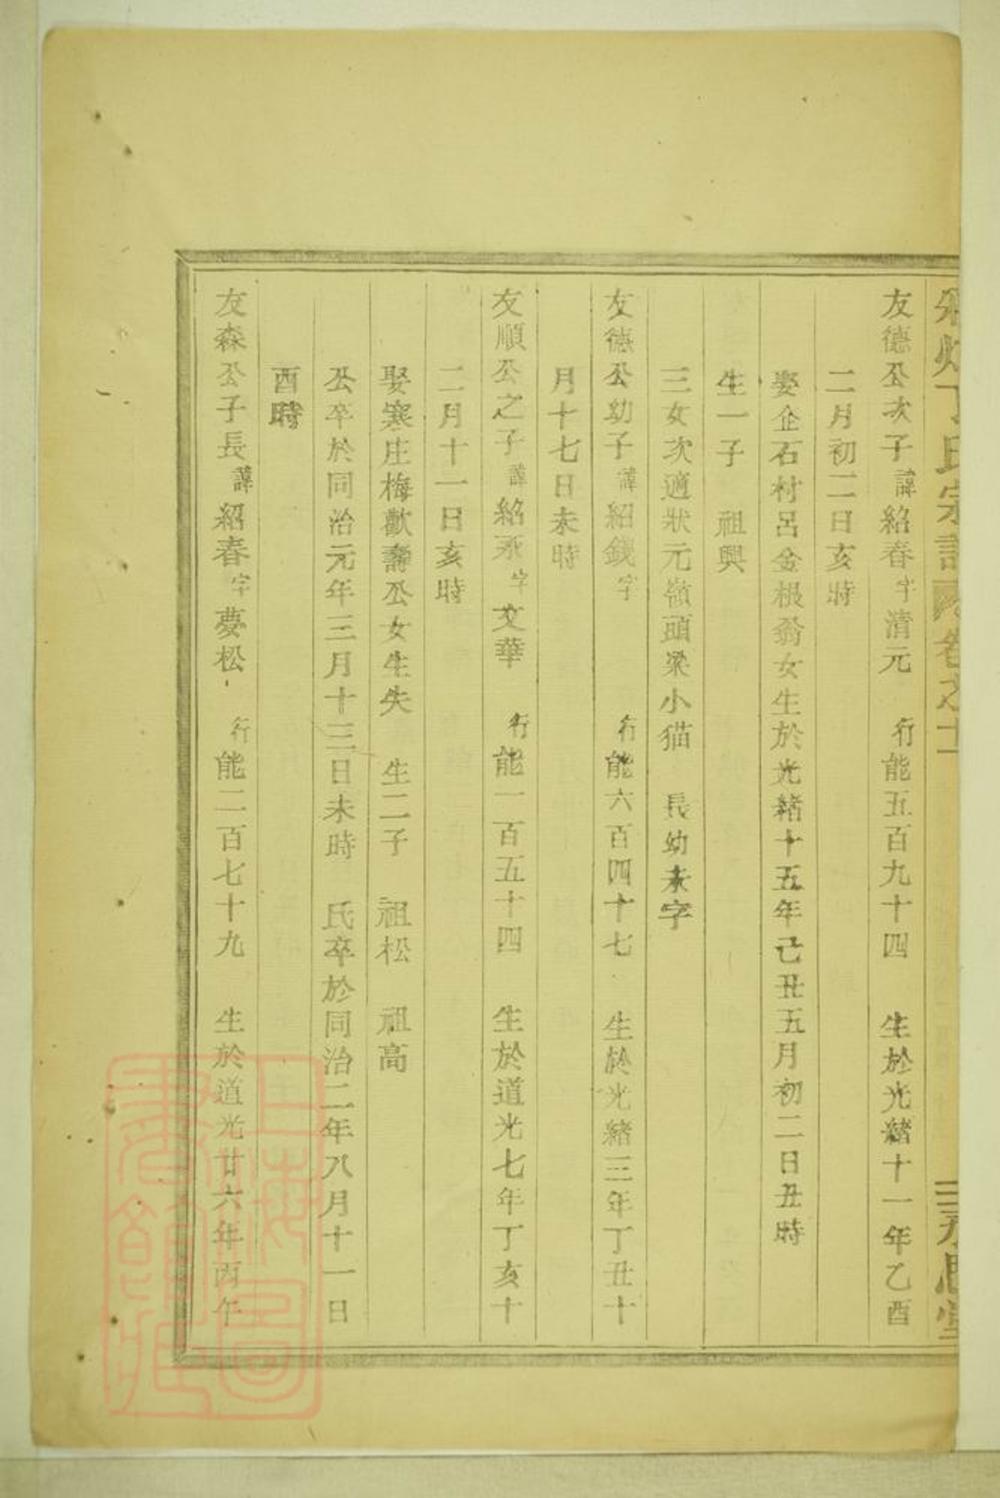 丁氏宗譜 卷之十一 三 永思堂
友德公次子諱紹春字清元 行能五百九十四 生於光緒十一年乙酉
二月初二日亥時
娶企石村呂金根翁女生於光緒十五年己丑五月初二日丑時
生一子 祖興
三女次適狀元嶺頭梁小猫 長幼未字
友德公幼子諱紹錢字 行能六百四十七 生於光緒三年丁丑十
月十七日未時
友順公之子諱紹永字文華 行能一百五十四 生於道光七年丁亥十
二月十一日亥時
娶寒庄梅歡壽公女生失 生二子 祖松 祖高
公卒於同治元年三月十三日未時 氏卒於同治二年八月十一日
酉時
友森公子長諱紹春字夢松 行能二百七十九 生於道光廿六年丙午
上海圖書館藏